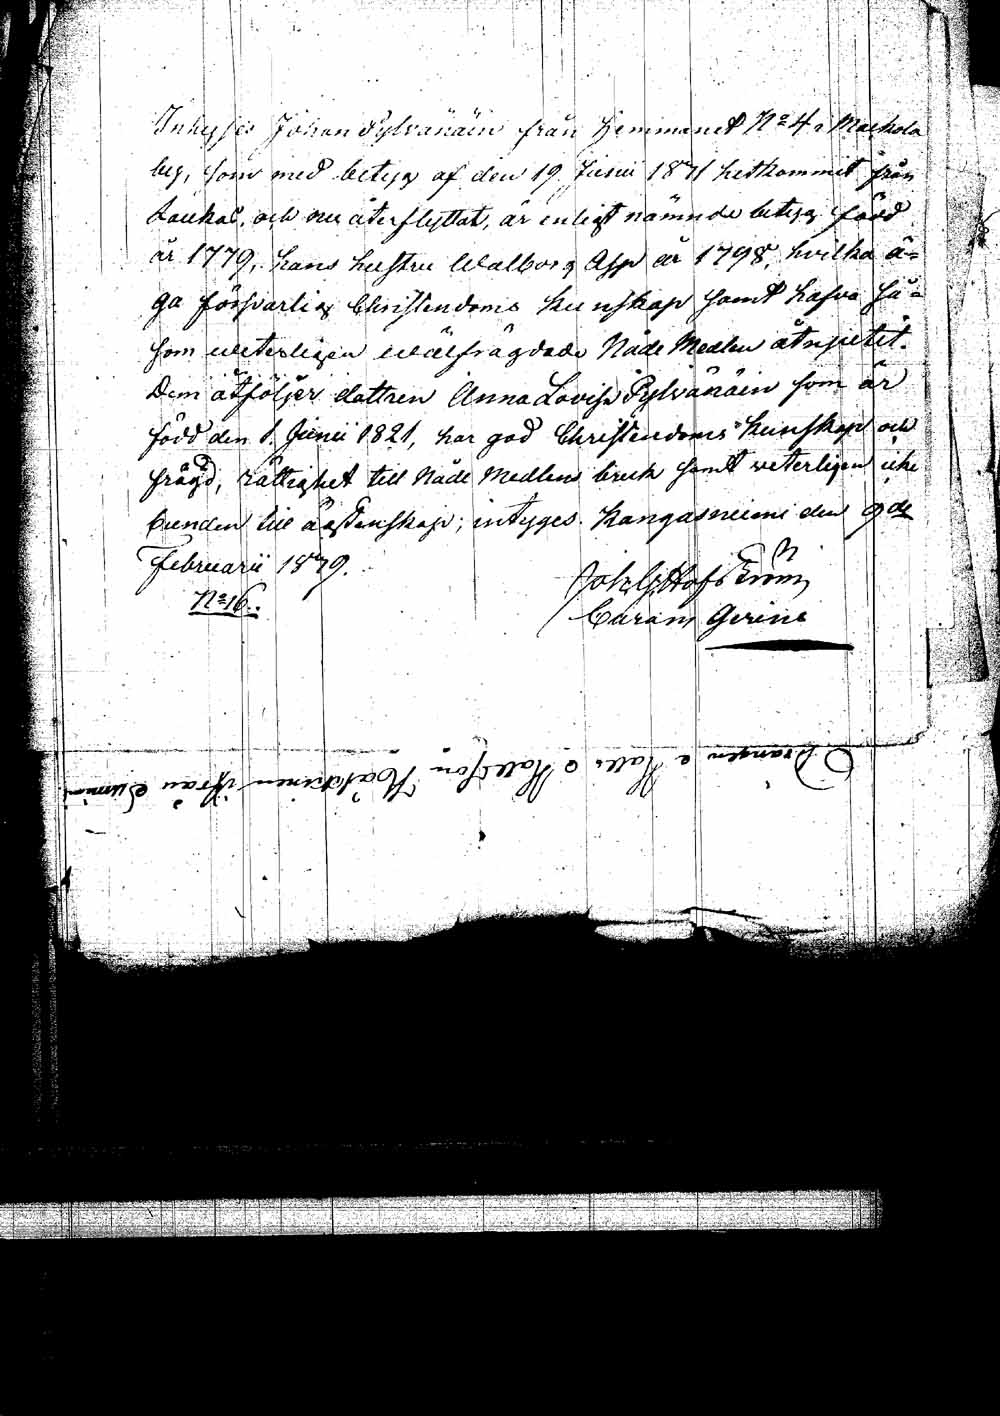 Inhyses Johan Pylvänäin från Hemmanet № 4 i Maekola
by, som med betyg af den 19 Junii 1871 hitkommit från
Laukas, och nu återflyttat, är enligt nämnde betyg född
år 1779, hans hustru Walborg Asp år 1798, hvilka ä-
ga försvarlig Christendoms kunskap samt hafva så-
som veterligen wälfrägdade Nåde Medlen åtnjutit.
Dem åtföljer dottren Anna Lovisa Pylvänäin som är
född den 1. Junii 1821, har god Christendoms kunskap och
frägd, rättighet till Nåde Medlens bruk samt veterligen icke
bunden till ägtenskap; intyges. Kangasniemi den 9de
Februarii 1879.
№ 16.
Joh. G. Hofström
Curam Gerens
Drängen Kalle Kallesson från